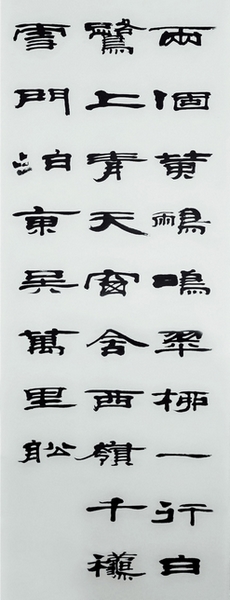 兩個黃鸝鳴翠柳一行白
鷺上青天窗含西嶺千龝
雪門泊東吳萬里船